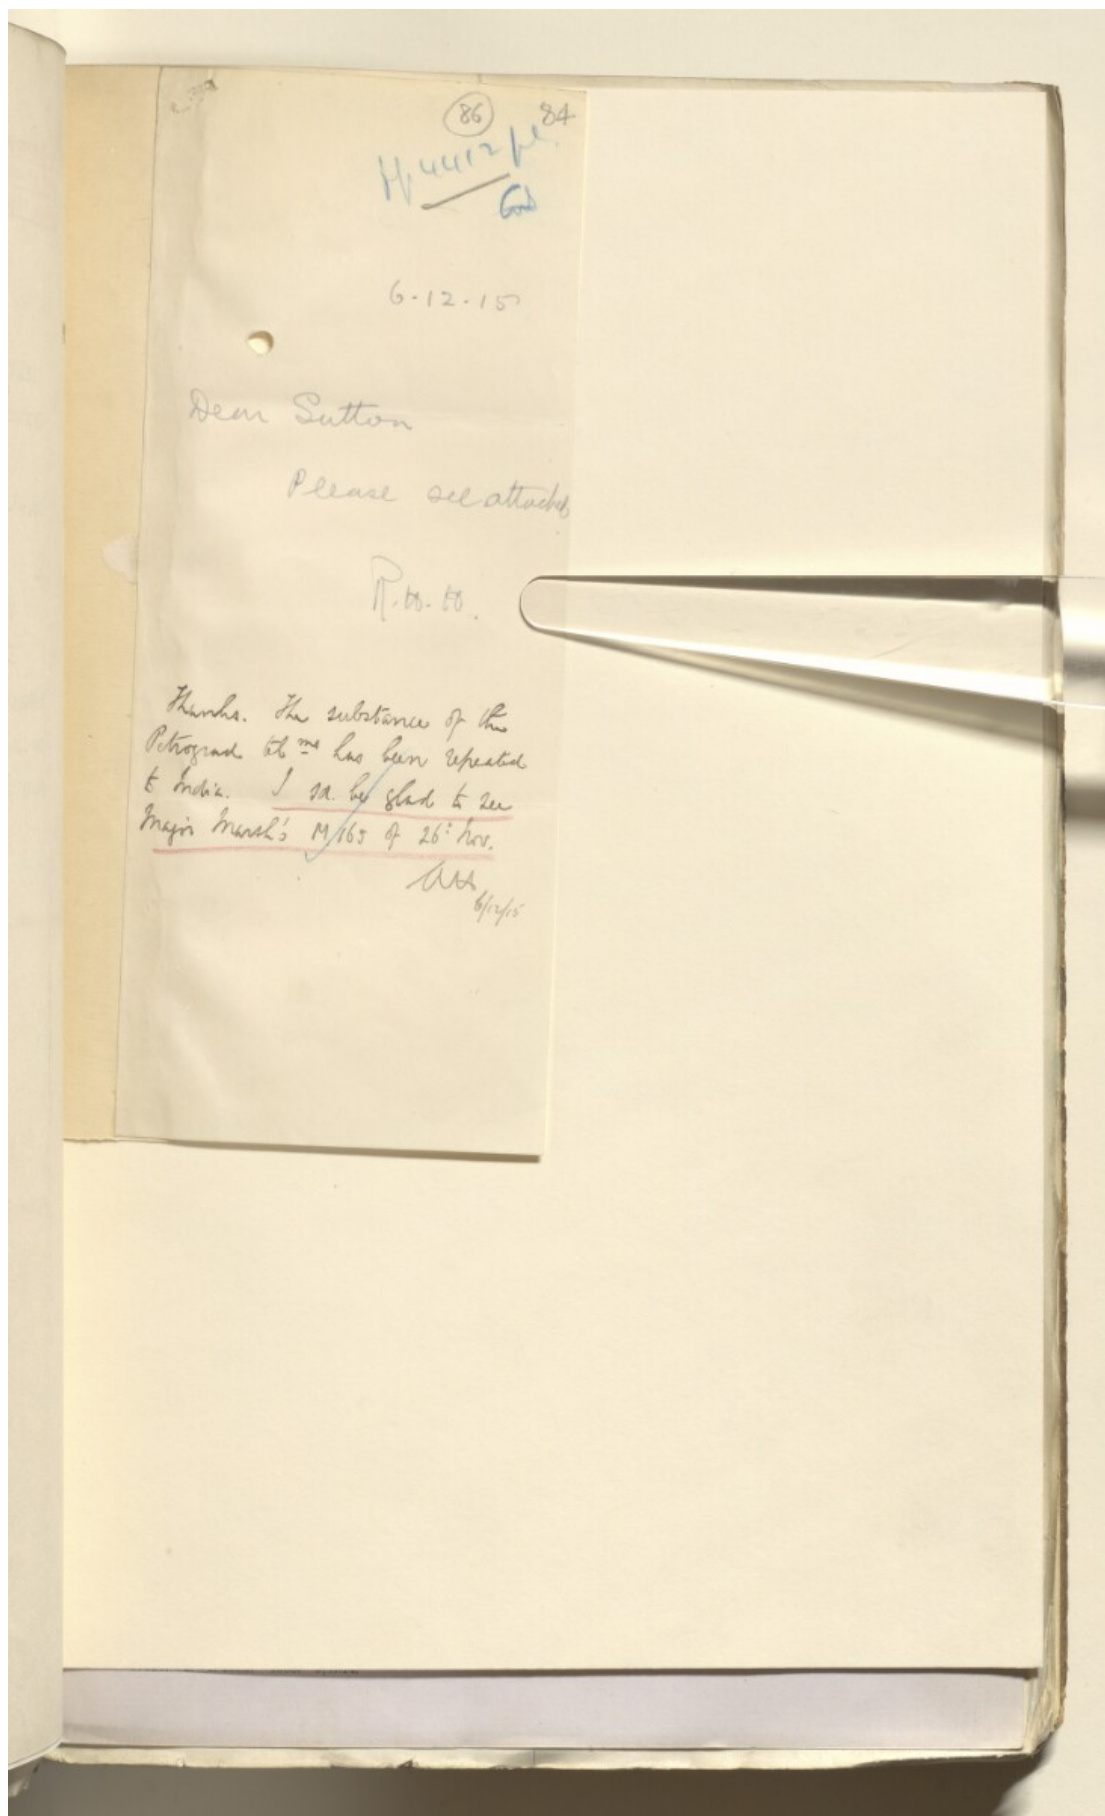 86 84
4412
6.12.15
Dear Sutton
Please see attached
Thanks. The substance of the
Petrograd tel ms has been repeated
to India. I sd. be glad to see
Major Marsh's M/165 of 26: Nov.
6/12/15